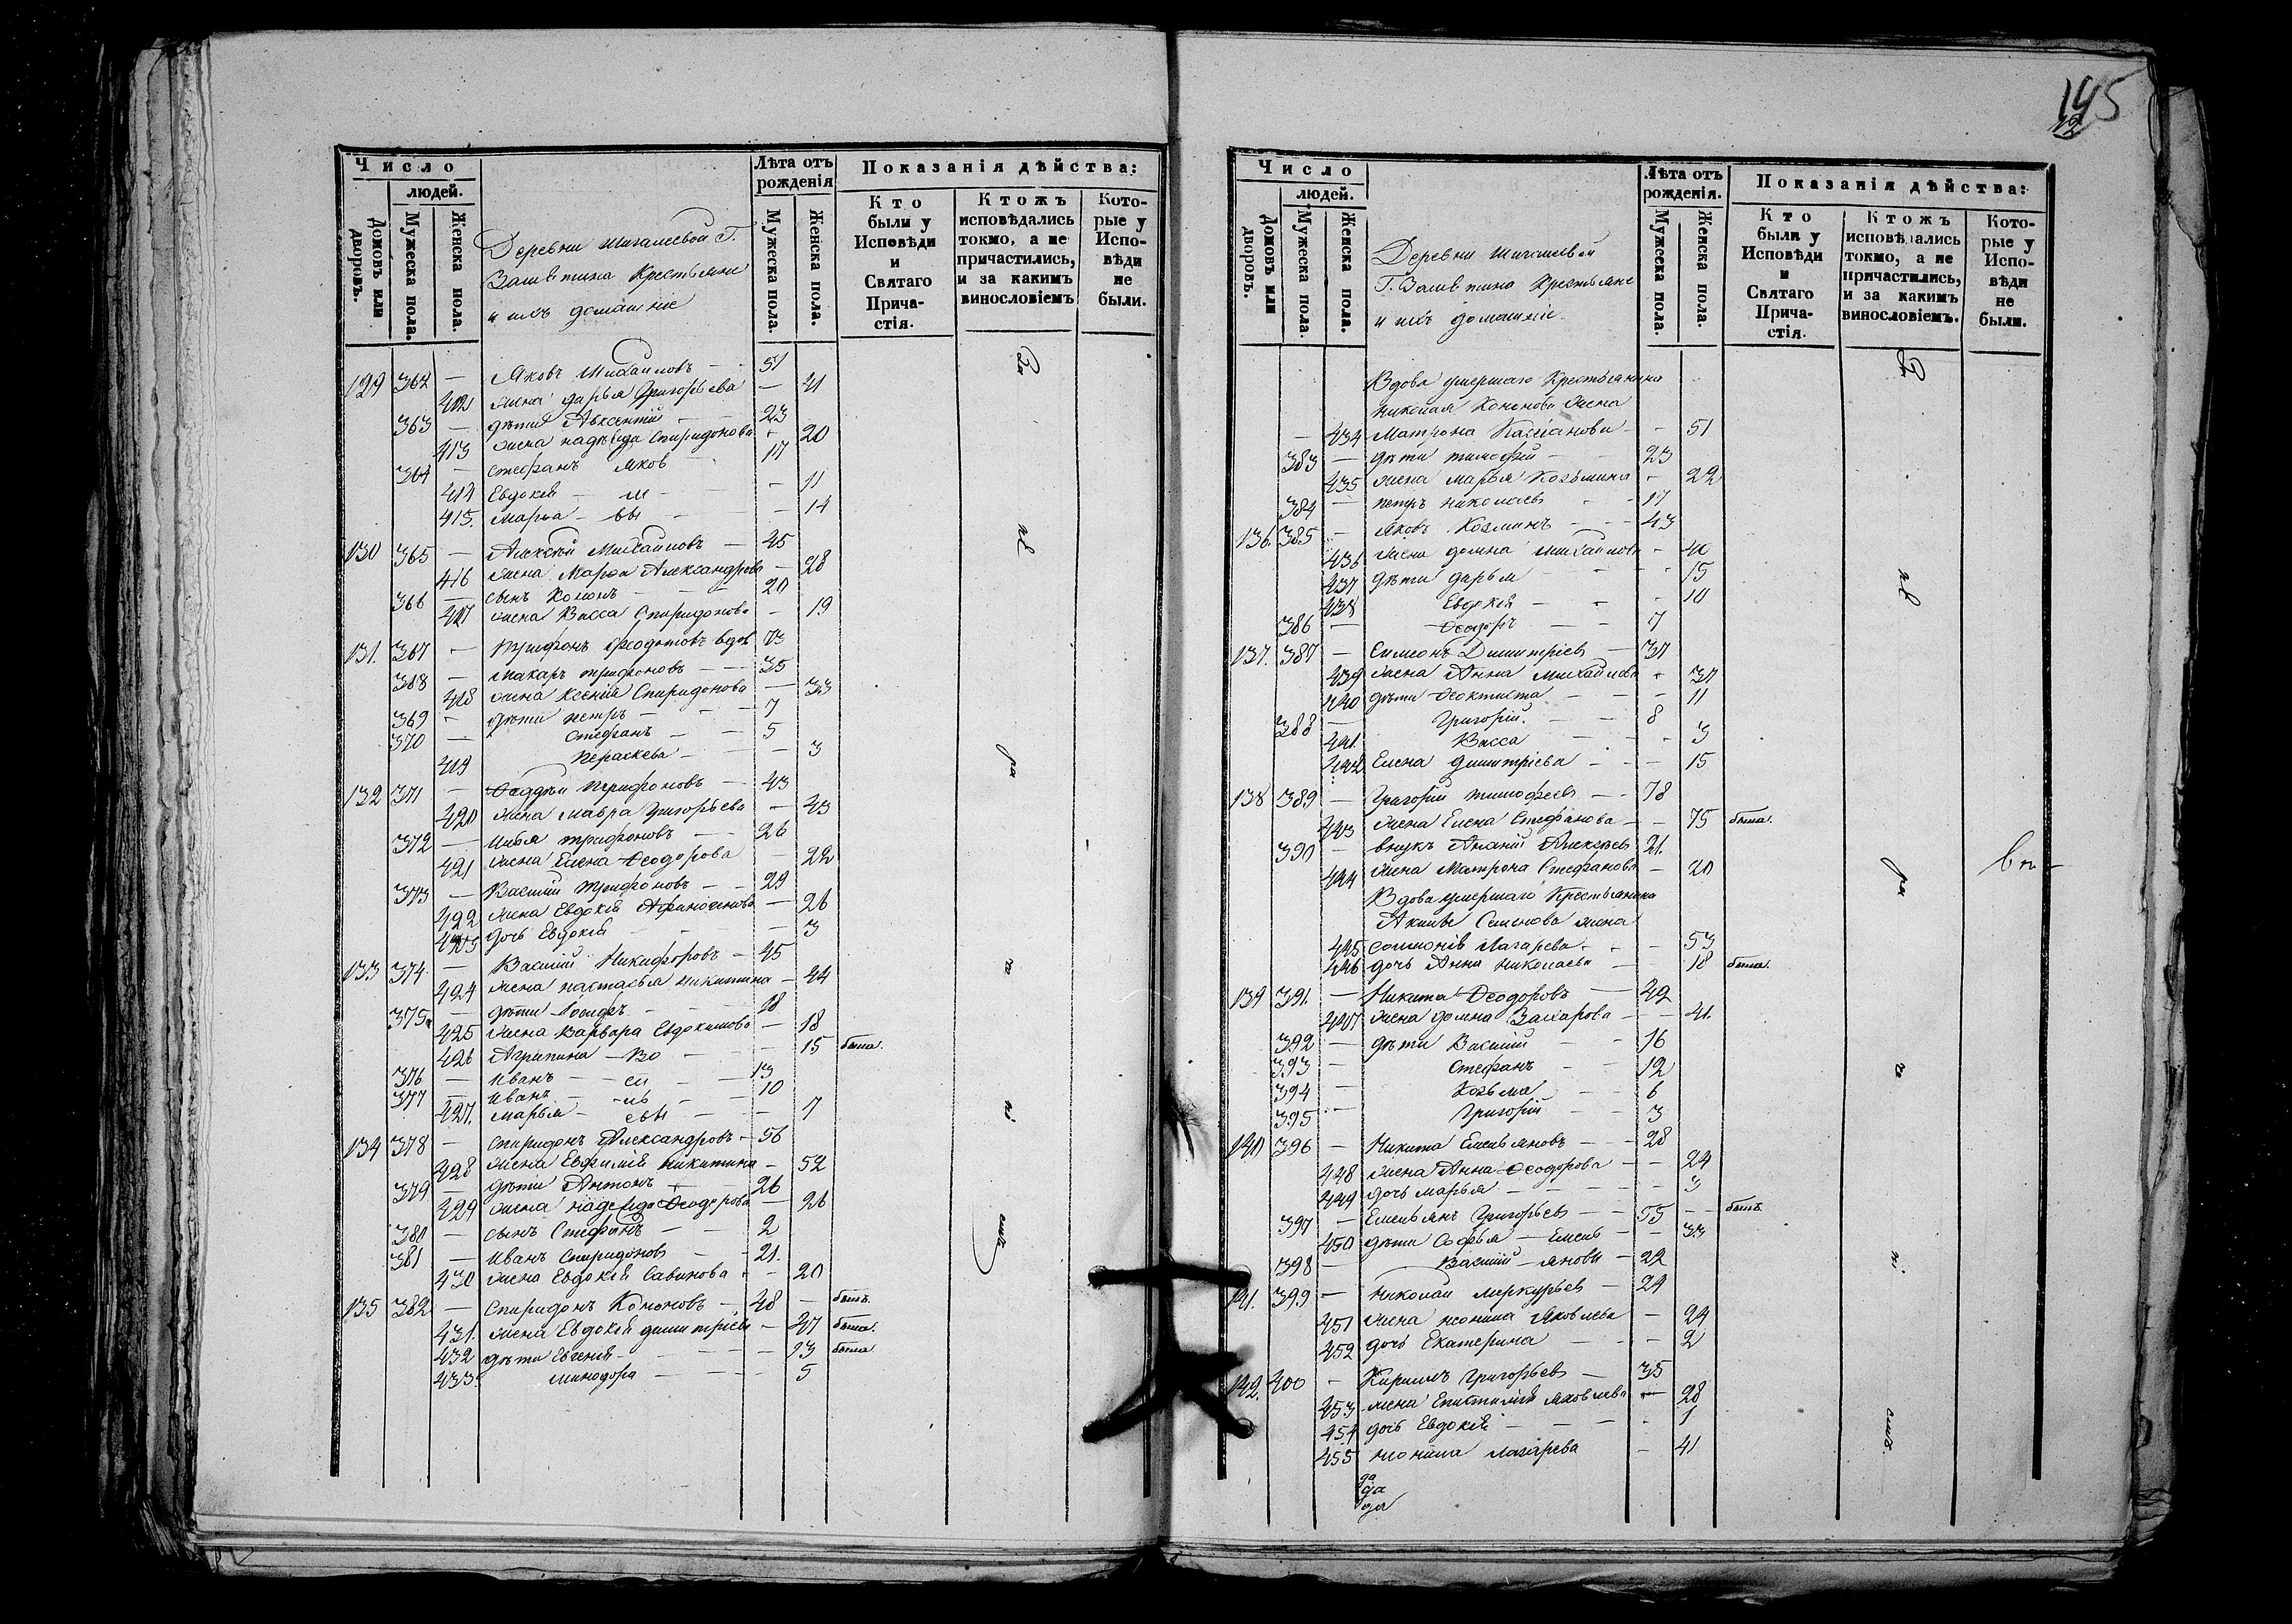 145
Число
людей.
Домовъ или дворовъ.
Мужеска пола.
Женска пола.
Деревни
Крестьяне
и ихъ домашніе
Лѣта отъ рожденія
Мужеска пола.
Женска пола.
Показанія дѣйства:
Кто были у Исповѣди и Святаго Причастія.
Ктожъ исповѣдались токмо, а не причастились, и за какимъ винословіемъ
Которые у Исповѣди не были.
129 362 — Яковъ Михаиловъ — 51
412 жена дарья Григорьева — 41
363 — дѣти Авксентій — 23
413 жена надѣжда Спиридонова — 20
364 — стефанъ Яков 17
414 Евдокія — 11
415. марѳа — вы — 14
130 365 — Алексѣй Михаиловъ — 45
416 жена Марѳа Александрова — 28
366 — сынъ Кононъ — 20
417 жена Васса Спиридонова — 19
131. 367 — Трифонъ Ѳеодотовъ вдов 73
368 — Макаръ трифоновъ — 35
418 жена Ксенія Спиридонова — 33
369 — дѣти петръ — 7
370 — Стефанъ — 5
419 Пераскева — 3
132 371 — Ѳаддѣй Трифоновъ — 43
420 жена мавра Григорьева — 43
372 — Илья трифоновъ — 26
421 жена Елена Ѳеодорова — 22
373 — Василій Трифоновъ — 29
422 жена Евдокія — 26
423 дочь Евдокія — 3
133 374 — Василій Никифоровъ — 45
424 жена настасья никитина — 44
375 — дѣти Іосифъ — 18
425 жена варвара Евдокимова — 18
426 Агрипина — Ва — 15 была.
376 — Иванъ — си — 13
377 — Иванъ — 10
427. марья — евы — 7
134 378 — Спиридонъ Александровъ — 56
428 жена Евфимія никитина — 52
379 — дѣти Антонъ — 26
429 жена надежда Ѳеодорова — 26
380 — сынъ Стефанъ — 2
381 — Иванъ Спиридонов — 21.
430 жена Евдокія Савинова — 20
135 382 — Спиридонъ Кононовъ — 48 — былъ.
431. жена Евдокія димитріева — 47 была.
432 дѣти Евгенія — 13 была
433. минодора — 5
Число
людей.
Домовъ или дворовъ.
Мужеска пола.
Женска пола.
Деревни
Крестьяне
и ихъ домашніе.
Лѣта отъ рожденія.
Мужеска пола.
Женска пола.
Показанія дѣйства:
Кто были у Исповѣди и Святаго Причастія.
Ктожъ исповѣдались токмо, а не причастились, и за какимъ винословіемъ.
Которые у Исповѣди не были.
Вдова умершаго Крестьянина
николая Кононова жена
— 434 Матрона Кассіанова — 51
383 — дѣти тимофей — 23
435 жена марья Козьмина — 22
384 — петръ николаевъ — 17
136. 385 — Яковъ Козминъ — 43
436 жена домна михаилова — 40
437 дѣти дарья — 15
438 Евдокія — 10
386 — Ѳеодоръ — 7
137. 387 — Симеонъ Димитріевъ — 37
439 жена Анна михайлова — 37
440 дѣти Ѳеоктиста — 11
388 — Григорій. — 8
441. Васса — 3
442 Елена димитріева — 15
138 389 — Григорій тимофеевъ — 78
443 жена Елена Стефанова — 75 была.
390 — внукъ Ананій Алексѣевъ 21.
444 жена Матрона Стефанова — 20
Вдова умершаго Крестьянина
Семенова жена
445 Соломонія Лазарева — 53
446 дочь Анна николаева — 18 была.
139 391. — Никита Ѳеодоровъ — 42
447 жена домна Захарова — 41.
392 — дѣти Василій — 16
393 — Стефанъ — 12
394 — Козьма — 6
395 — Григорій — 3
140 396 — Никита Емельяновъ — 28
448 жена Анна Ѳеодорова — 24
449 дочь марья — 3
397 — Емельянъ Григорьевъ — 55 — былъ.
450 дѣти Софья — Емель — 33
398 — Василій — яновы — 22
141. 399 — николай меркурьевъ — 24
451 жена неонила Яковлева — 24
452 дочь Екатерина — 2
142. 400 — Кирилъ Григорьевъ — 35
453 жена Епистимія яковлева — 28
454 дочь Евдокія — 1
455 неонила лазарева — 41